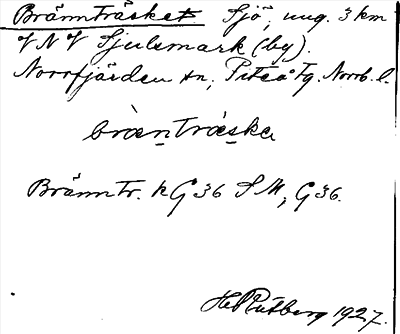 Brännträsket Sjö, ung. 3 km
VNV Sjulsmark (by).
Norrfjärden sn, Piteå tg. Norrb. l.
bràntráska
Bränntr. kG 36 SM, G 36.
H. Rutberg 1927.